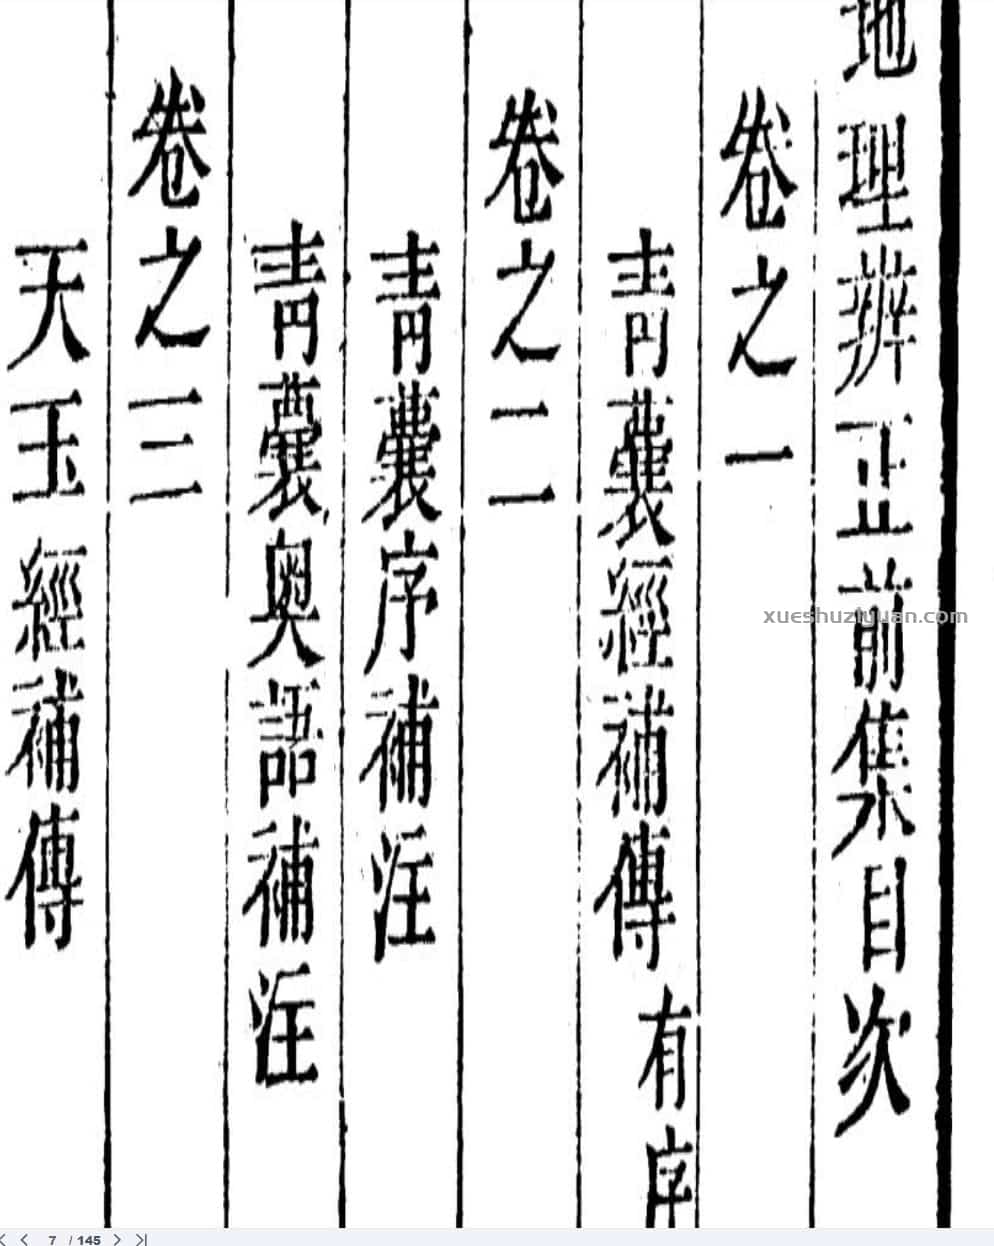 地理辨正前集目次
卷之一
青囊經補傳 有序
卷之二
青囊序補注
青囊奧語補注
卷之三
天玉經補傳
xueshuziyuan.com
7 / 145